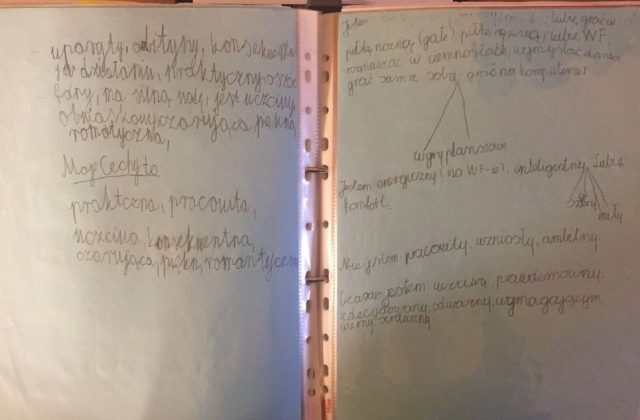 uparty, ambitny, konsekwentny
w działaniu, praktyczny, oszczę
dny, ma silną wolę, jest uczciwy
obowiązkowy, czarująca, piękna
romotyczna,
Moje Cechy to
praktczna, pracowita,
uczciwa, konsekwentna,
czarująca, piękn, romantyczna
Jestem lubię grać w
piłkę nożną (gałę), piłkę ręczną, lubię WF
rozmawiać w ciemnościach, wymyślać dania
grać sam ze sobą, grać na komputerze!
w gry planszowe
Jestem: energiczny (na WF-ie), inteligentny, Lubię
komfort.
szczery
miły
Nie jestem: pracowity, wzniosły, ambitny
Czasami jestem: uczciwy, prawdomówny,
zdecydowany, odważny, wymagającym,
wierny serdeczny